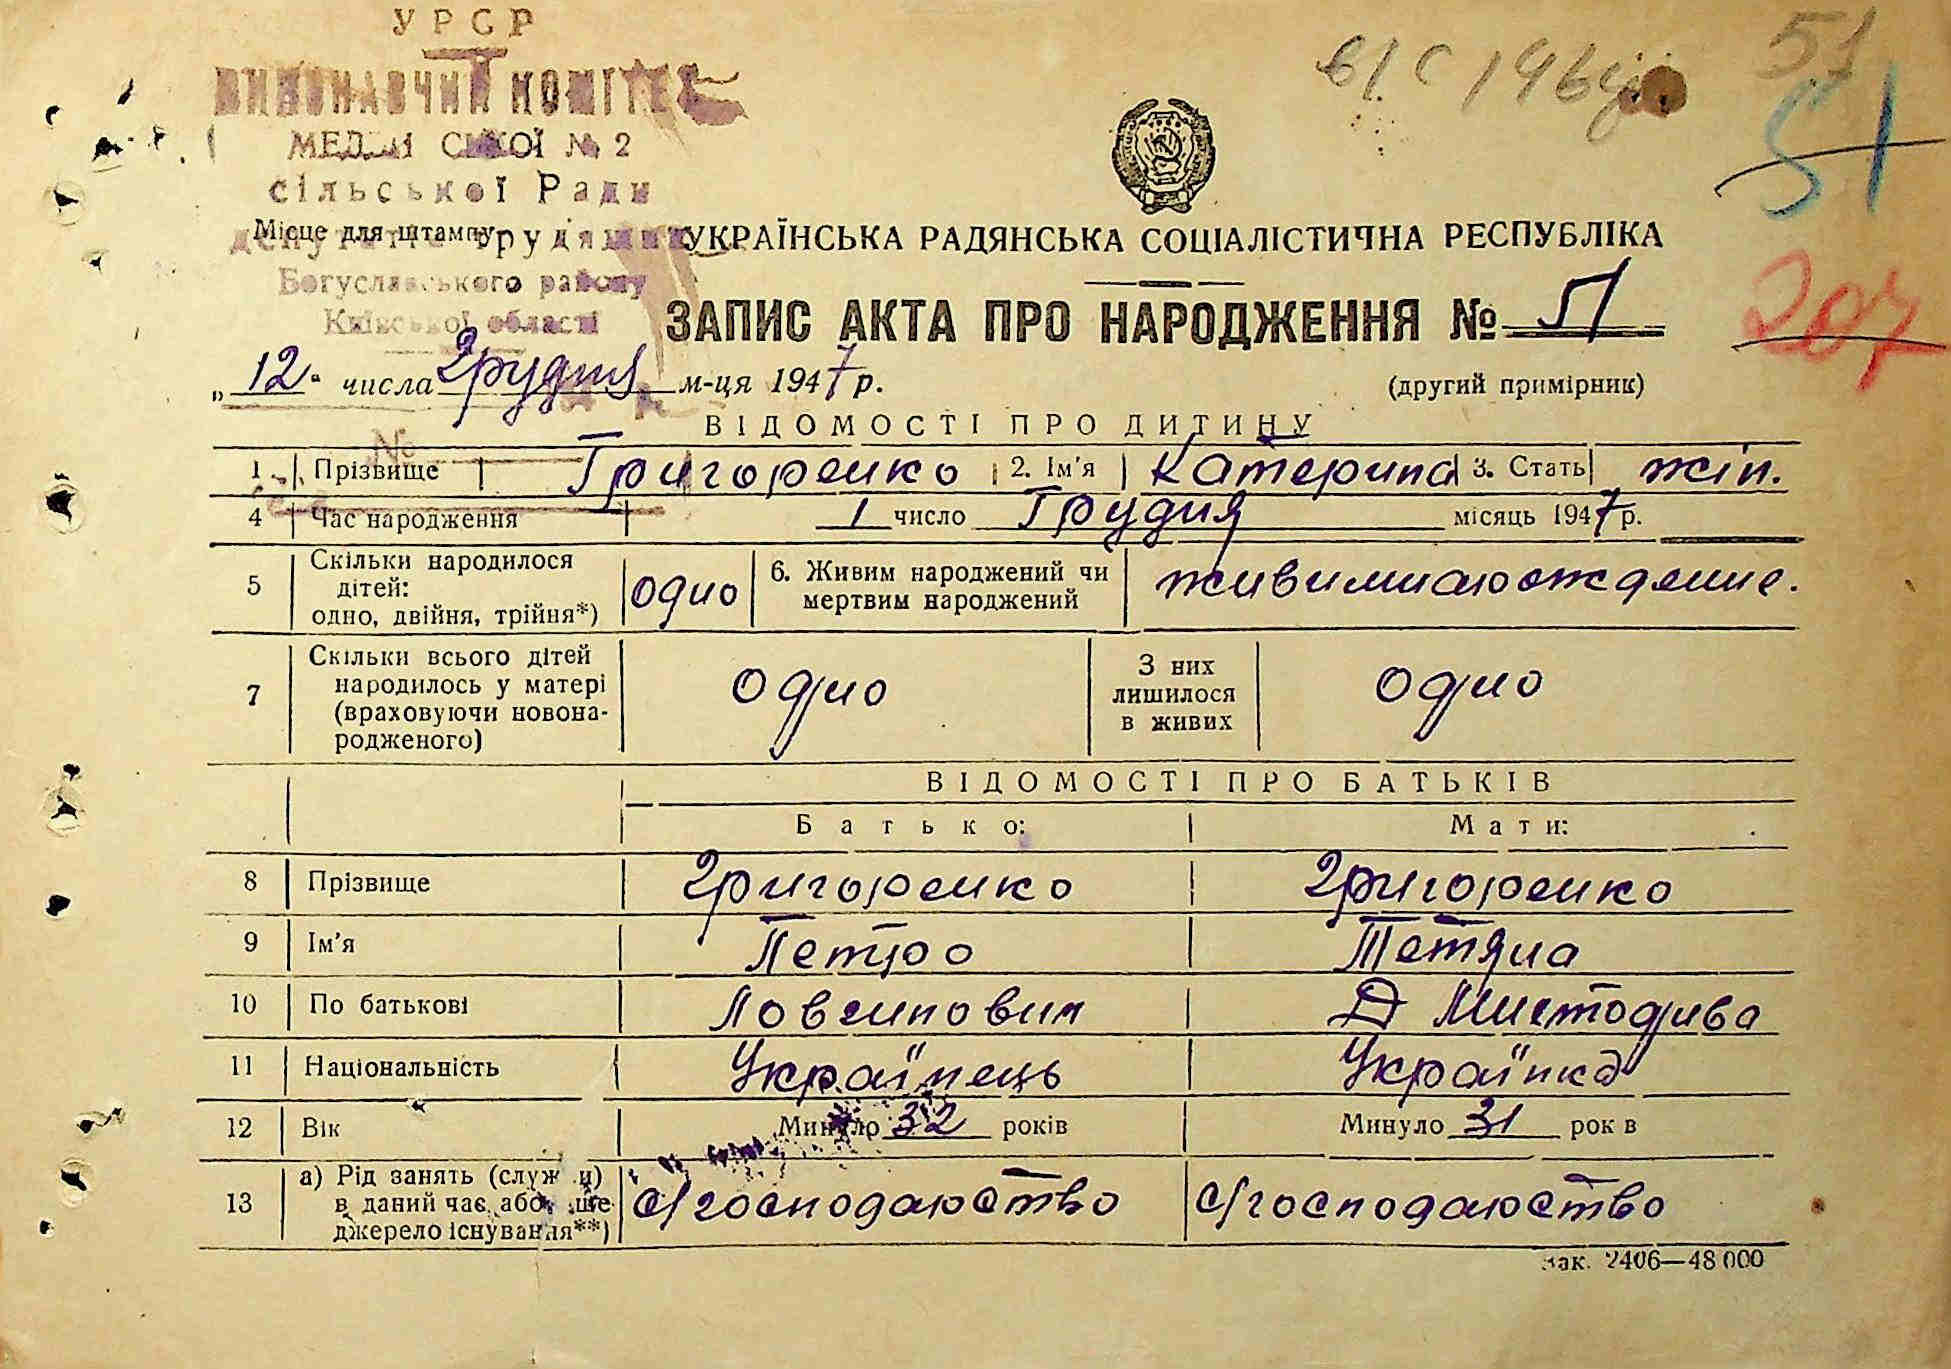 УРСР
ВИКОНАВЧИЙ КОМІТЕТ
№ 2
сільської Ради
Місце для штампу
Богуславського району
Київської області
51
51
207
УКРАЇНСЬКА РАДЯНСЬКА СОЦІАЛІСТИЧНА РЕСПУБЛІКА
ЗАПИС АКТА ПРО НАРОДЖЕННЯ № 51
„12" числа Грудня м-ця 1947 р. (другий примірник)
ВІДОМОСТІ ПРО ДИТИНУ
№
1 Прізвище Григоренко 2. Ім'я Катерина 3. Стать жін.
4 Час народження 1 число Грудня місяць 1947 р.
5 Скільки народилося дітей: одно, двійня, трійня*) одно 6. Живим народжений чи мертвим народжений
7 Скільки всього дітей народилось у матері (враховуючи новонародженого) одно З них лишилося в живих одно
ВІДОМОСТІ ПРО БАТЬКІВ
Батько: Мати:
8 Прізвище Григоренко Григоренко
9 Ім'я Петро Тетяна
10 По батькові
11 Національність Українець Українка
12 Вік Минуло 32 років Минуло 31 рок в
13 а) Рід занять (служ и) в даний час або ше джерело існування**) с/господарство с/господарство
Зак. 2406—48 000